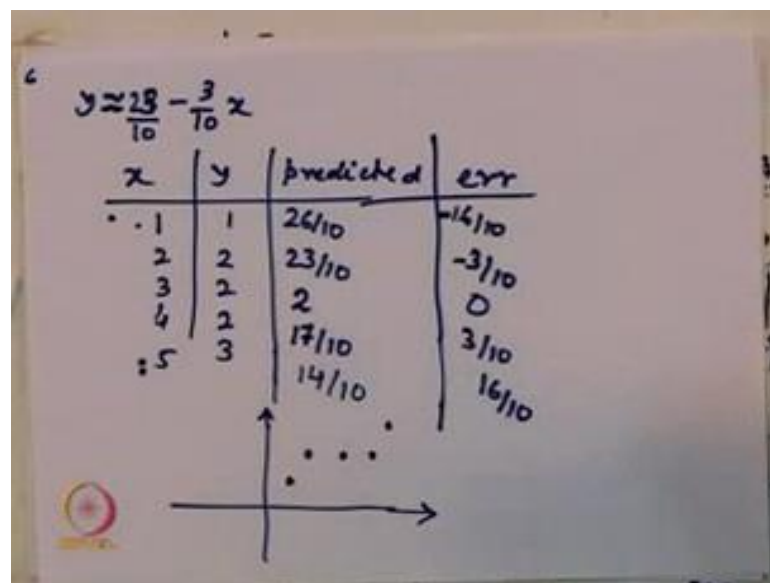 6
y ≈ 29/10 - 3/10 x
x y predicted err
1 1 26/10 -16/10
2 2 23/10 -3/10
3 2 2 0
4 2 17/10 3/10
5 3 14/10 16/10